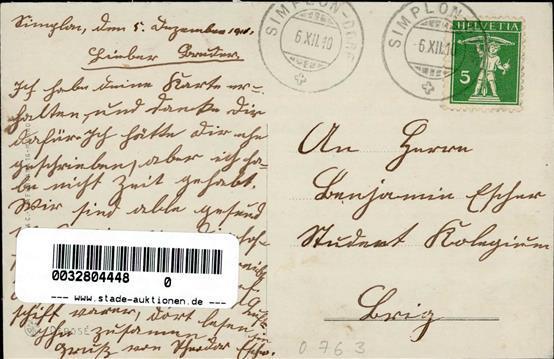 Simplon, den 5. Dezember 1910.
Lieber Bruder
Ich habe deine Karte er-
halten, und danke Dir
dafür. Ich hätte Dir ehe
geschrieben, aber ich ha-
be nicht Zeit gehabt.
Wir sind alle gesund
zusammen
Gruss von Theodor Escher.
SIMPLON-DORF
6.XII.10
SIMPLON
6.XII.10
HELVETIA
5
An Herrn
Benjamin Escher
Student Kolegium
Brig
0032804448 0
--- www.stade-auktionen.de ---
DÉPOSÉ
0763